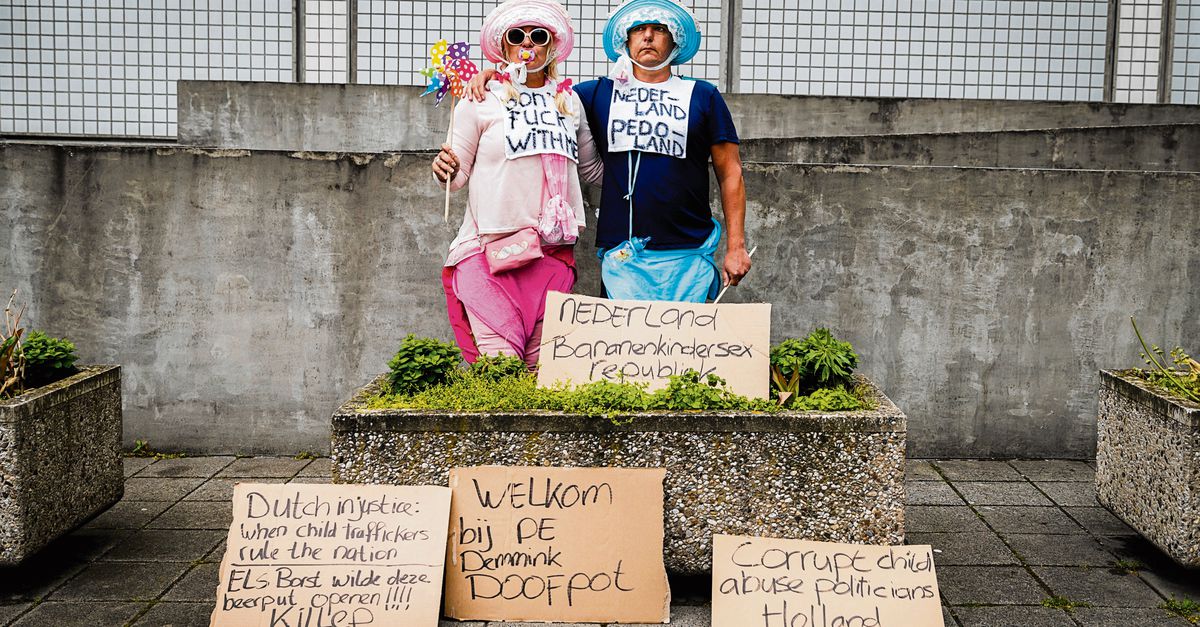 DON'T
FUCK
WITH ME
NEDER-
LAND
PEDO-
LAND
NEDERLAND
Bananenkindersex
republiek
Dutch injustice:
when child traffickers
rule the nation
ELs Borst wilde deze
beerput openen!!!!
Killed
WELKOM
bij DE
Demmink
DOOFPOT
Corrupt child
abuse politicians
Holland